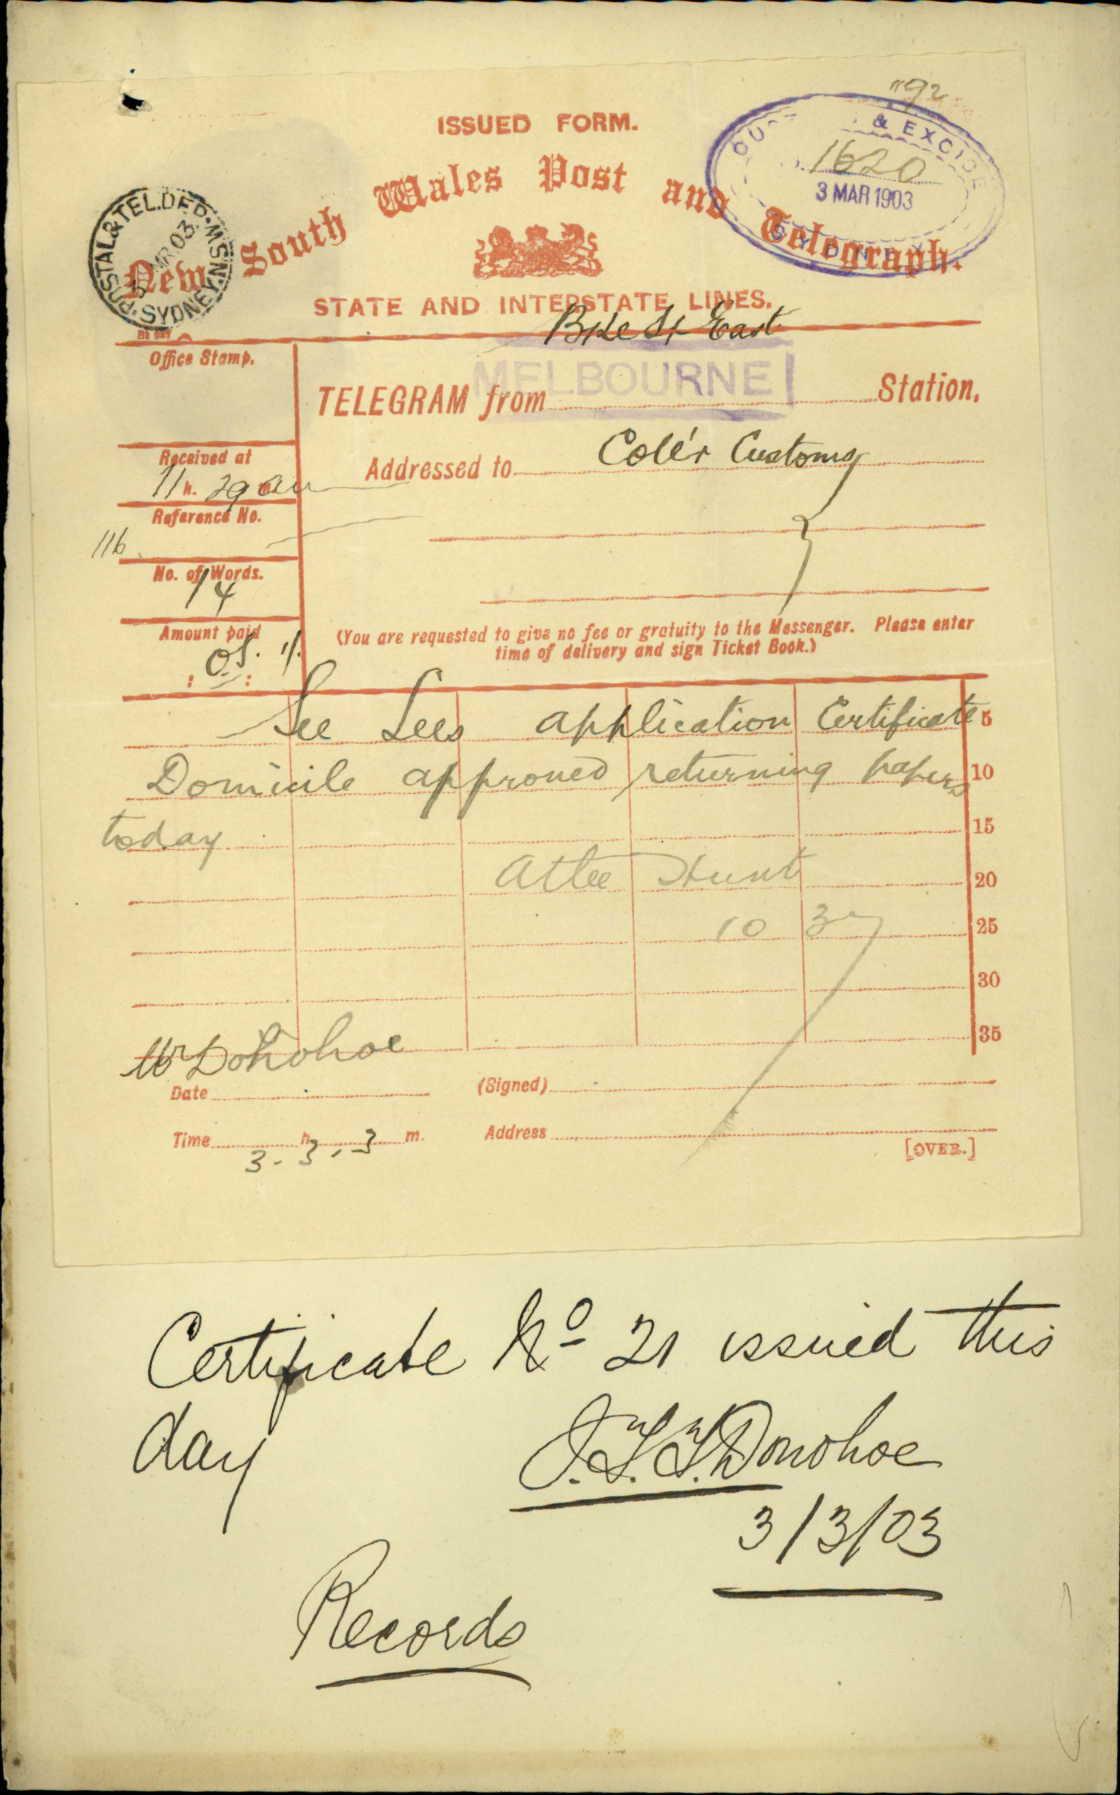 "92
ISSUED FORM.
New South Wales Post and Telegraph.
POSTAL & TEL. DEP. N.S.W.
MR 03
SYDNEY
& EXCISE
1620
3 MAR 1903
SYDNEY
STATE AND INTERSTATE LINES.
St East
Office Stamp.
MELBOURNE
TELEGRAM from Station,
Received at
11 h. 29 am
Addressed to Coller Customs
Reference No.
116
No. of Words.
14
Amount paid
: OS : 1/.
(You are requested to give no fee or gratuity to the Messenger. Please enter
time of delivery and sign Ticket Book.)
See Lees application Certificate 5
Domicile approved returning papers 10
today 15
Atlee Hunt 20
10 37 25
30
35
Mr Donohoe
Date (Signed)
Time h. m. Address
3-3-3
[OVER.]
Certificate No 21 issued this
day
J.T.T. Donohoe
3/3/03
Records